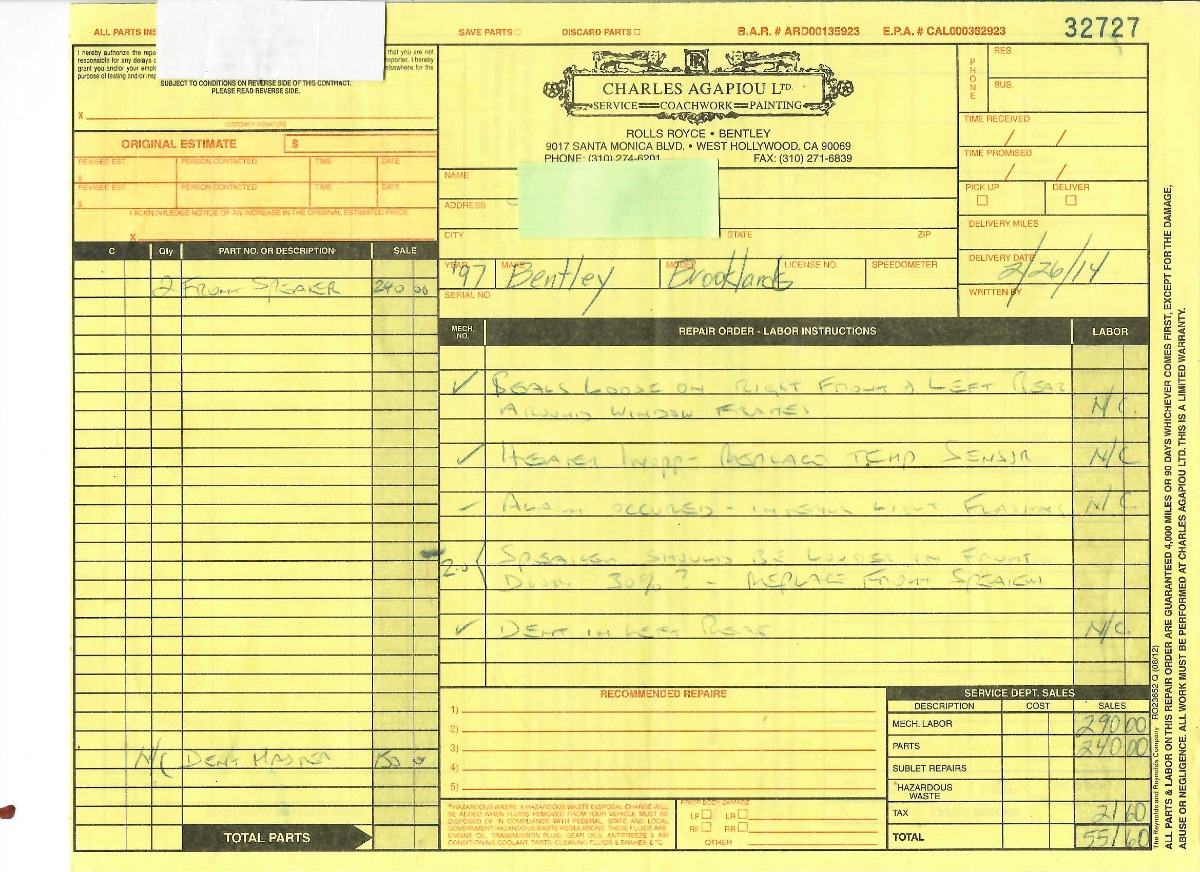 ALL PARTS INS
SAVE PARTS
DISCARD PARTS
B.A.R. # ARD00135923
E.P.A. # CAL000352923
32727
I hereby authorize the repa
that you are not
responsible for any delays c
reporter. I hereby
grant you and/or your emplo
elsewhere for the
purpose of testing and/or insp
SUBJECT TO CONDITIONS ON REVERSE SIDE OF THIS CONTRACT.
PLEASE READ REVERSE SIDE.
X
CUSTOMER SIGNATURE
ORIGINAL ESTIMATE $
REVISED EST. PERSON CONTACTED TIME DATE
$
REVISED EST. PERSON CONTACTED TIME DATE
$
I ACKNOWLEDGE NOTICE OF AN INCREASE IN THE ORIGINAL ESTIMATED PRICE
X
R R
CHARLES AGAPIOU LTD.
SERVICE COACHWORK PAINTING
ROLLS ROYCE • BENTLEY
9017 SANTA MONICA BLVD. • WEST HOLLYWOOD, CA 90069
PHONE: (310) 274-6201 FAX: (310) 271-6839
NAME
ADDRESS
CITY STATE ZIP
YEAR '97 MAKE Bentley MODEL Brooklands LICENSE NO. SPEEDOMETER
SERIAL NO.
PHONE
RES.
BUS.
TIME RECEIVED
/ /
TIME PROMISED
/ /
PICK UP DELIVER
DELIVERY MILES
DELIVERY DATE
2/26/14
WRITTEN BY
C Qty. PART NO. OR DESCRIPTION SALE
2 FRONT SPEAKER 240 00
N/C DENT MASTER 150
TOTAL PARTS
MECH. NO. REPAIR ORDER - LABOR INSTRUCTIONS LABOR
✓ SEALS LOOSE ON RIGHT FRONT & LEFT REAR
AROUND WINDOW FRAMES N/C.
✓ HEATER INOPP - REPLACE TEMP SENSOR N/C
✓ ALARM OCCURED - INTERIOR LIGHT FLASHING N/C
2.0 SPEAKER SHOULD BE LOUDER IN FRONT
DOOR 30%? - REPLACE FRONT SPEAKER
✓ DENT IN LEFT REAR N/C.
RECOMMENDED REPAIRS
1)
2)
3)
4)
5)
*HAZARDOUS WASTE: A HAZARDOUS WASTE DISPOSAL CHARGE WILL
BE ADDED WHEN FLUIDS REMOVED FROM YOUR VEHICLE MUST BE
DISPOSED OF IN COMPLIANCE WITH FEDERAL, STATE AND LOCAL
GOVERNMENT HAZARDOUS WASTE REGULATIONS. THESE FLUIDS ARE:
ENGINE OIL, TRANSMISSION FLUID, GEAR OILS, ANTIFREEZE & AIR
CONDITIONING COOLANT, PARTS, CLEANING FLUIDS & BRAKES, ETC.
PRIOR BODY DAMAGE
LF LR
RF RR
OTHER
SERVICE DEPT. SALES
DESCRIPTION COST SALES
MECH. LABOR 290 00
PARTS 240 00
SUBLET REPAIRS
*HAZARDOUS WASTE
TAX 21 60
TOTAL 551 60
The Reynolds and Reynolds Company RO23652 Q (08/12)
ALL PARTS & LABOR ON THIS REPAIR ORDER ARE GUARANTEED 4,000 MILES OR 90 DAYS WHICHEVER COMES FIRST, EXCEPT FOR THE DAMAGE,
ABUSE OR NEGLIGENCE. ALL WORK MUST BE PERFORMED AT CHARLES AGAPIOU LTD. THIS IS A LIMITED WARRANTY.